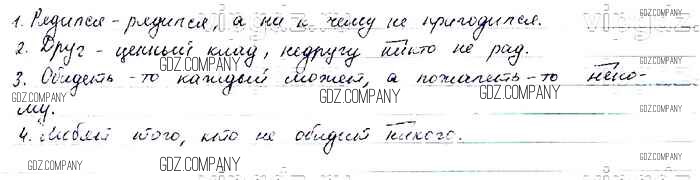 1. Рядился - рядился, а ни к чему не пригодился.
2. Друг - ценный клад, недругу никто не рад.
GDZ.COMPANY GDZ.COMPANY
3. Обидеть-то каждый может, а пожалеть-то неко-
GDZ.COMPANY GDZ.COMPANY
му.
GDZ.COMPANY
4. Любят того, кто не обидит никого.
GDZ.COMPANY GDZ.COMPANY GDZ.COMPANY